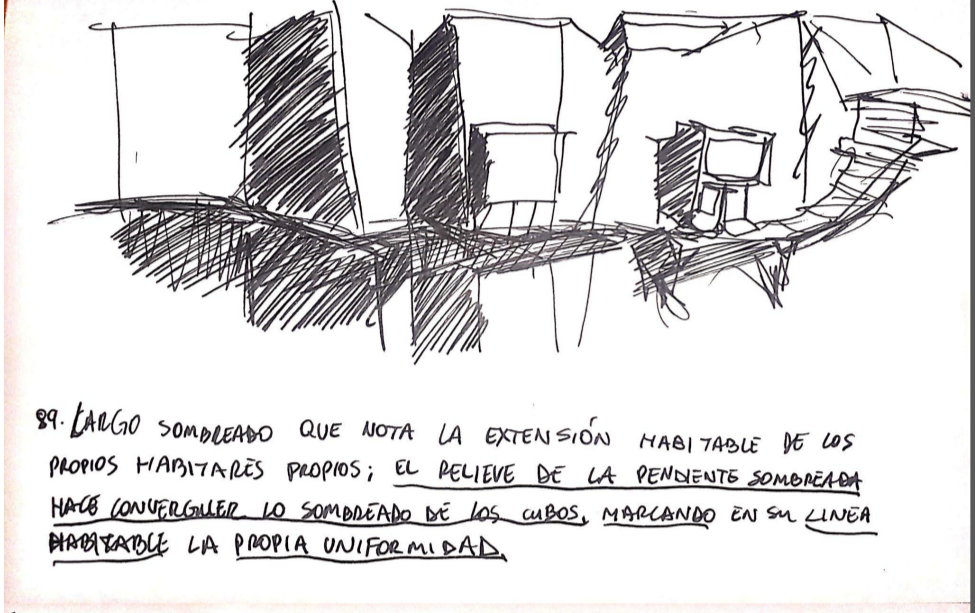 89. LARGO SOMBREADO QUE NOTA LA EXTENSIÓN HABITABLE DE LOS
PROPIOS HABITARES PROPIOS; EL RELIEVE DE LA PENDIENTE SOMBREADA
HACE CONVERGUER LO SOMBREADO DE LOS CUBOS, MARCANDO EN SU LINEA
HABITABLE LA PROPIA UNIFORMIDAD.